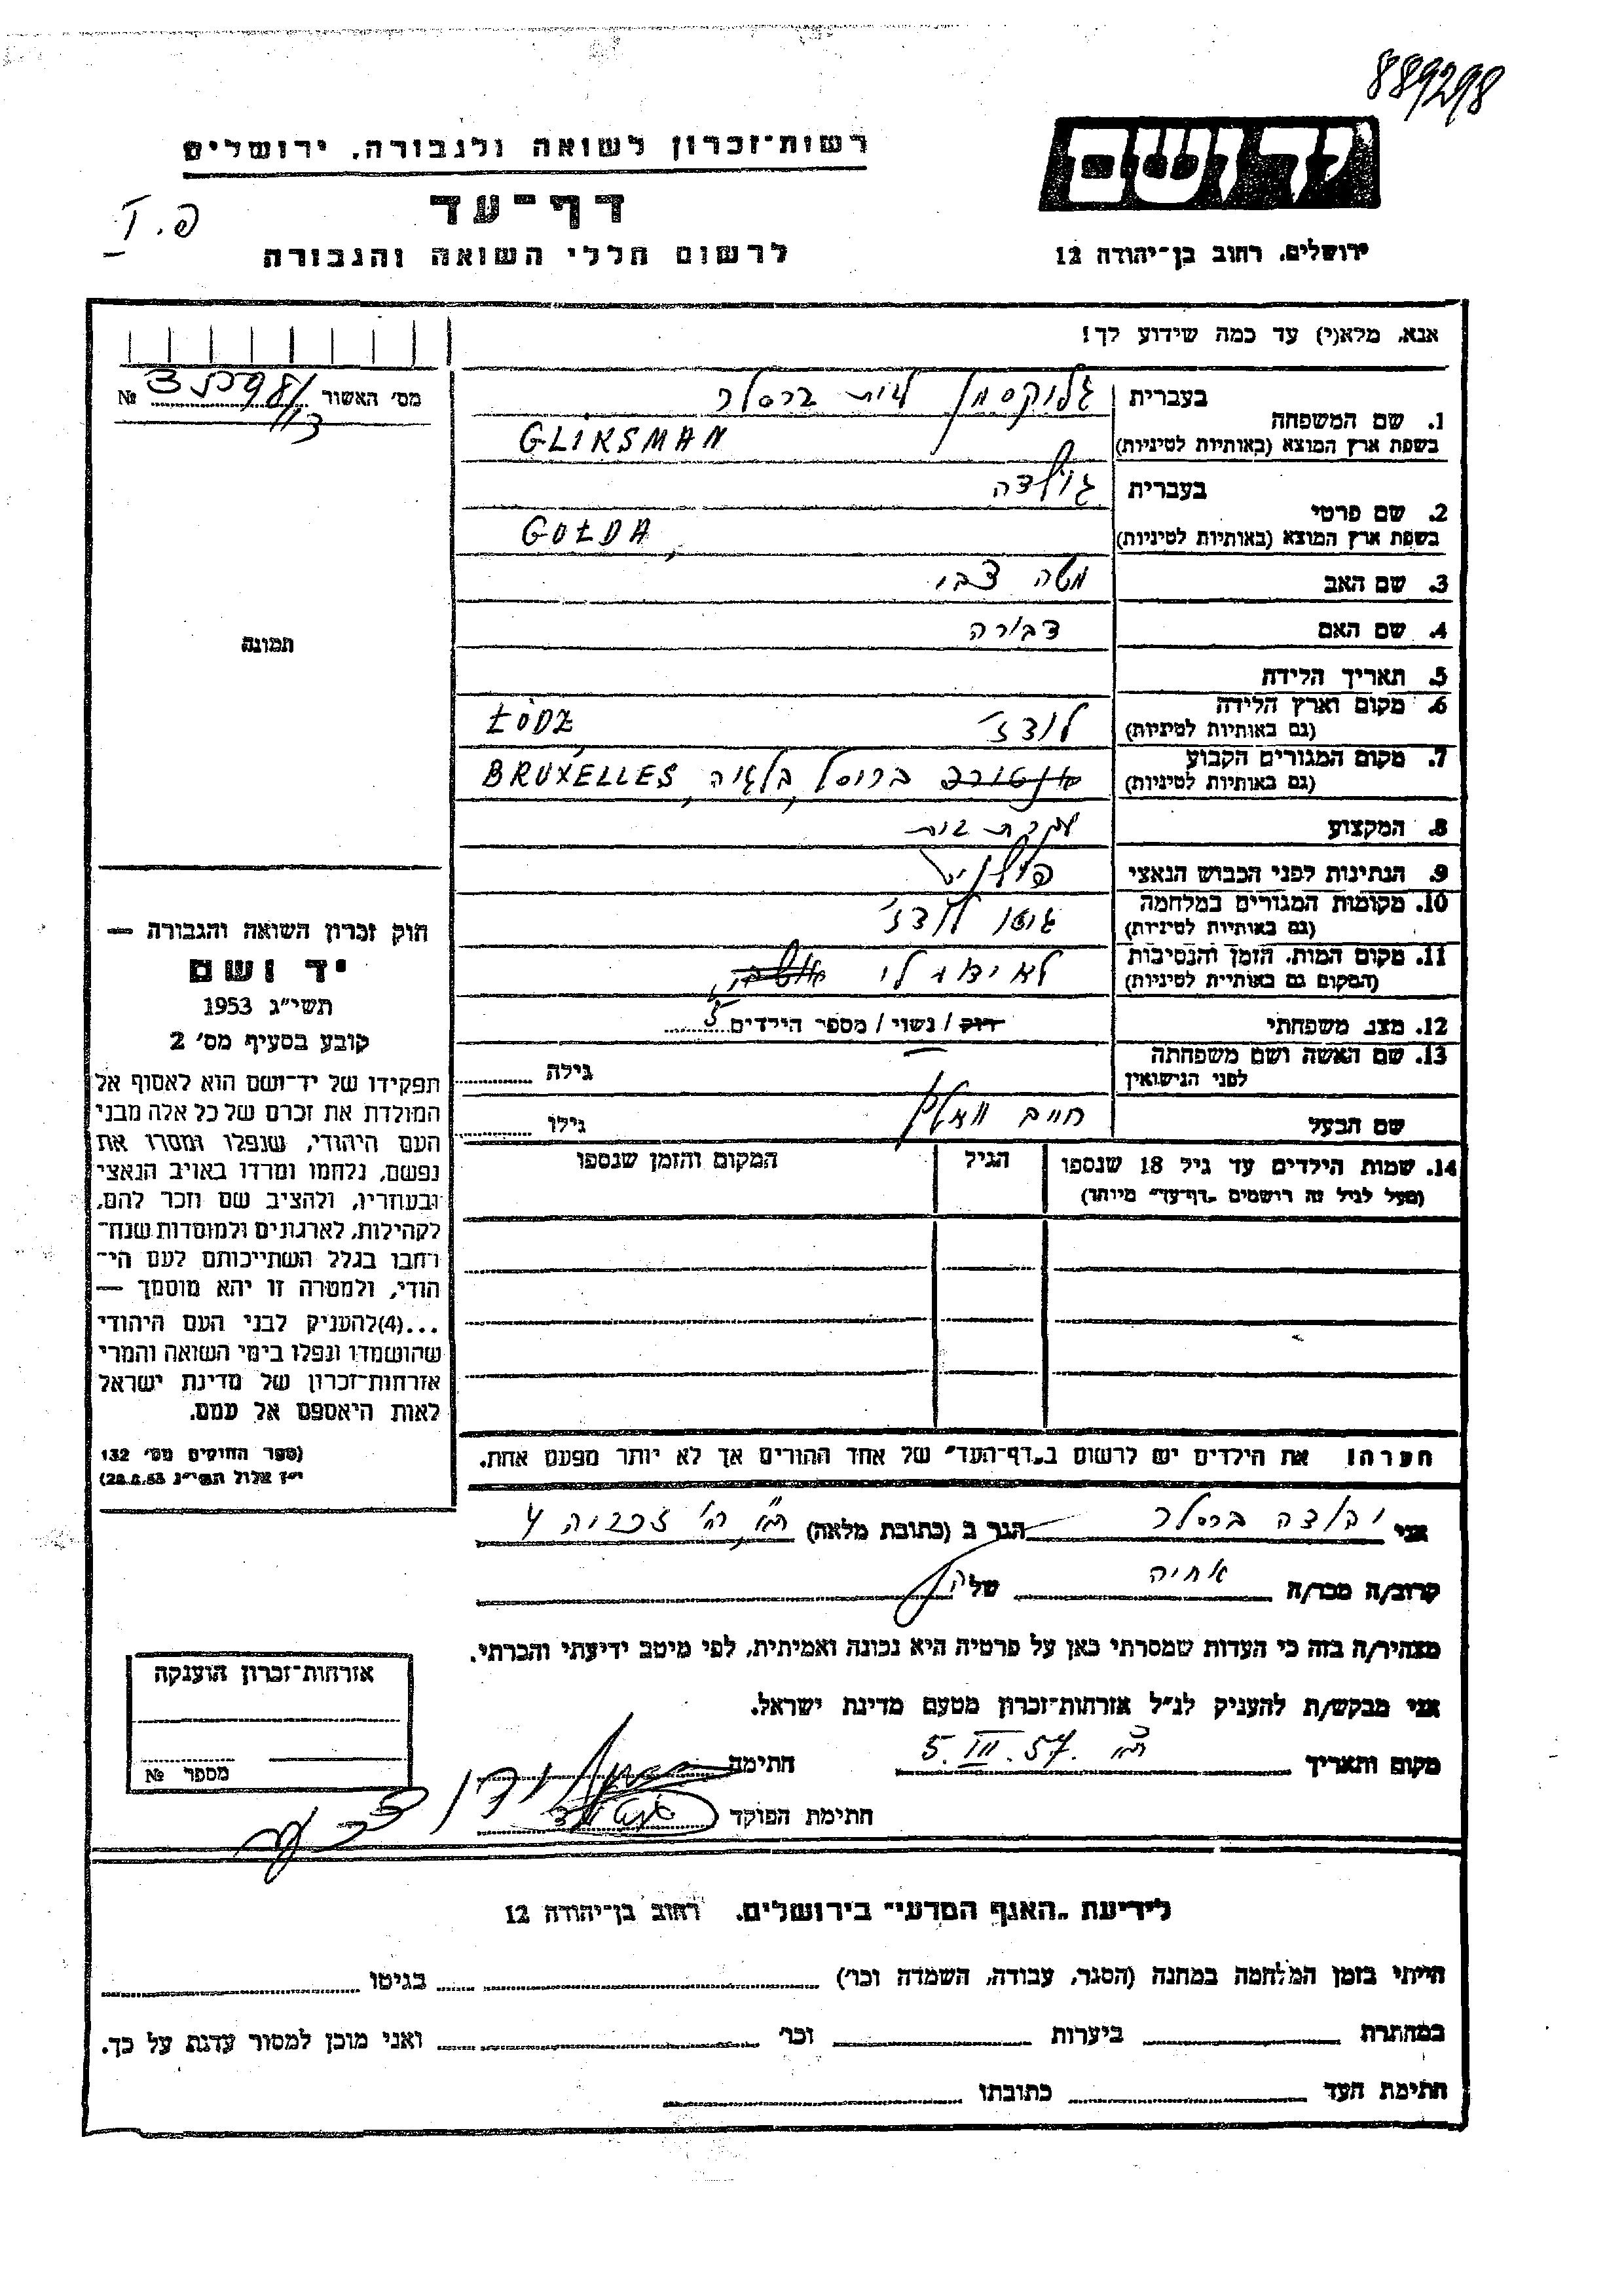 889298
יד ושם
רשות-זכרון לשואה ולגבורה, ירושלים
דף-עד
לרשום חללי השואה והגבורה
ירושלים, רחוב בן-יהודה 12
פ. I
אנא, מלא(י) עד כמה שידוע לך!
מס׳ האשור №
1. שם המשפחה
בעברית גליקסמן לבית ברסלר
בשפת ארץ המוצא (באותיות לטיניות) GLIKSMAN
2. שם פרטי
בעברית גולדה
בשפת ארץ המוצא (באותיות לטיניות) GOŁDA,
3. שם האב משה צבי
4. שם האם דבורה
5. תאריך הלידה
6. מקום וארץ הלידה לודז׳ ŁÓDZ
(גם באותיות לטיניות)
7. מקום המגורים הקבוע בריסל, בלגיה, BRUXELLES
(גם באותיות לטיניות)
8. המקצוע עקרת בית
9. הנתינות לפני הכבוש הנאצי פולנית
10. מקומות המגורים במלחמה גיטו לודז׳
(גם באותיות לטיניות)
11. מקום המות, הזמן והנסיבות לא ידוע לי
(המקום גם באותיות לטיניות)
12. מצב משפחתי רוק / נשוי / מספר הילדים 5
13. שם האשה ושם משפחתה
לפני הנישואין
גילה
שם הבעל חיים
גילו
14. שמות הילדים עד גיל 18 שנספו
(מעל לגיל זה רושמים „דף-עד״ מיוחד)
הגיל
המקום והזמן שנספו
הערה! את הילדים יש לרשום ב„דף-העד״ של אחד ההורים אך לא יותר מפעם אחת.
תמונה
חוק זכרון השואה והגבורה —
יד ושם
תשי״ג 1953
קובע בסעיף מס׳ 2
תפקידו של יד-ושם הוא לאסוף אל
המולדת את זכרם של כל אלה מבני
העם היהודי, שנפלו ומסרו את
נפשם, נלחמו ומרדו באויב הנאצי
ובעוזריו, ולהציב שם וזכר להם,
לקהילות, לארגונים ולמוסדות שנח־
רבו בגלל השתייכותם לעם הי־
הודי, ולמטרה זו יהא מוסמך —
...(4)להעניק לבני העם היהודי
שהושמדו ונפלו בימי השואה והמרי
אזרחות-זכרון של מדינת ישראל
לאות היאספם אל עמם.
(ספר החוקים מס׳ 132
י״ז אלול תשי״ג 28.8.53)
אני יהודה ברסלר הגר ב (כתובת מלאה) ת״א, רח׳ זכריה 4
קרוב/ה מכר/ה אחיה של
מצהיר/ה בזה כי העדות שמסרתי כאן על פרטיה היא נכונה ואמיתית, לפי מיטב ידיעתי והכרתי.
אני מבקש/ת להעניק לנ״ל אזרחות-זכרון מטעם מדינת ישראל.
מקום ותאריך ת״א 5. III. 57 חתימה
חתימת הפוקד
אזרחות-זכרון הוענקה
מספר №
לידיעת „האגף המדעי״ בירושלים, רחוב בן-יהודה 12
הייתי בזמן המלחמה במחנה (הסגר, עבודה, השמדה וכו׳) בגיטו
במחתרת ביערות וכו׳ ואני מוכן למסור עדות על כך.
חתימת העד כתובתו